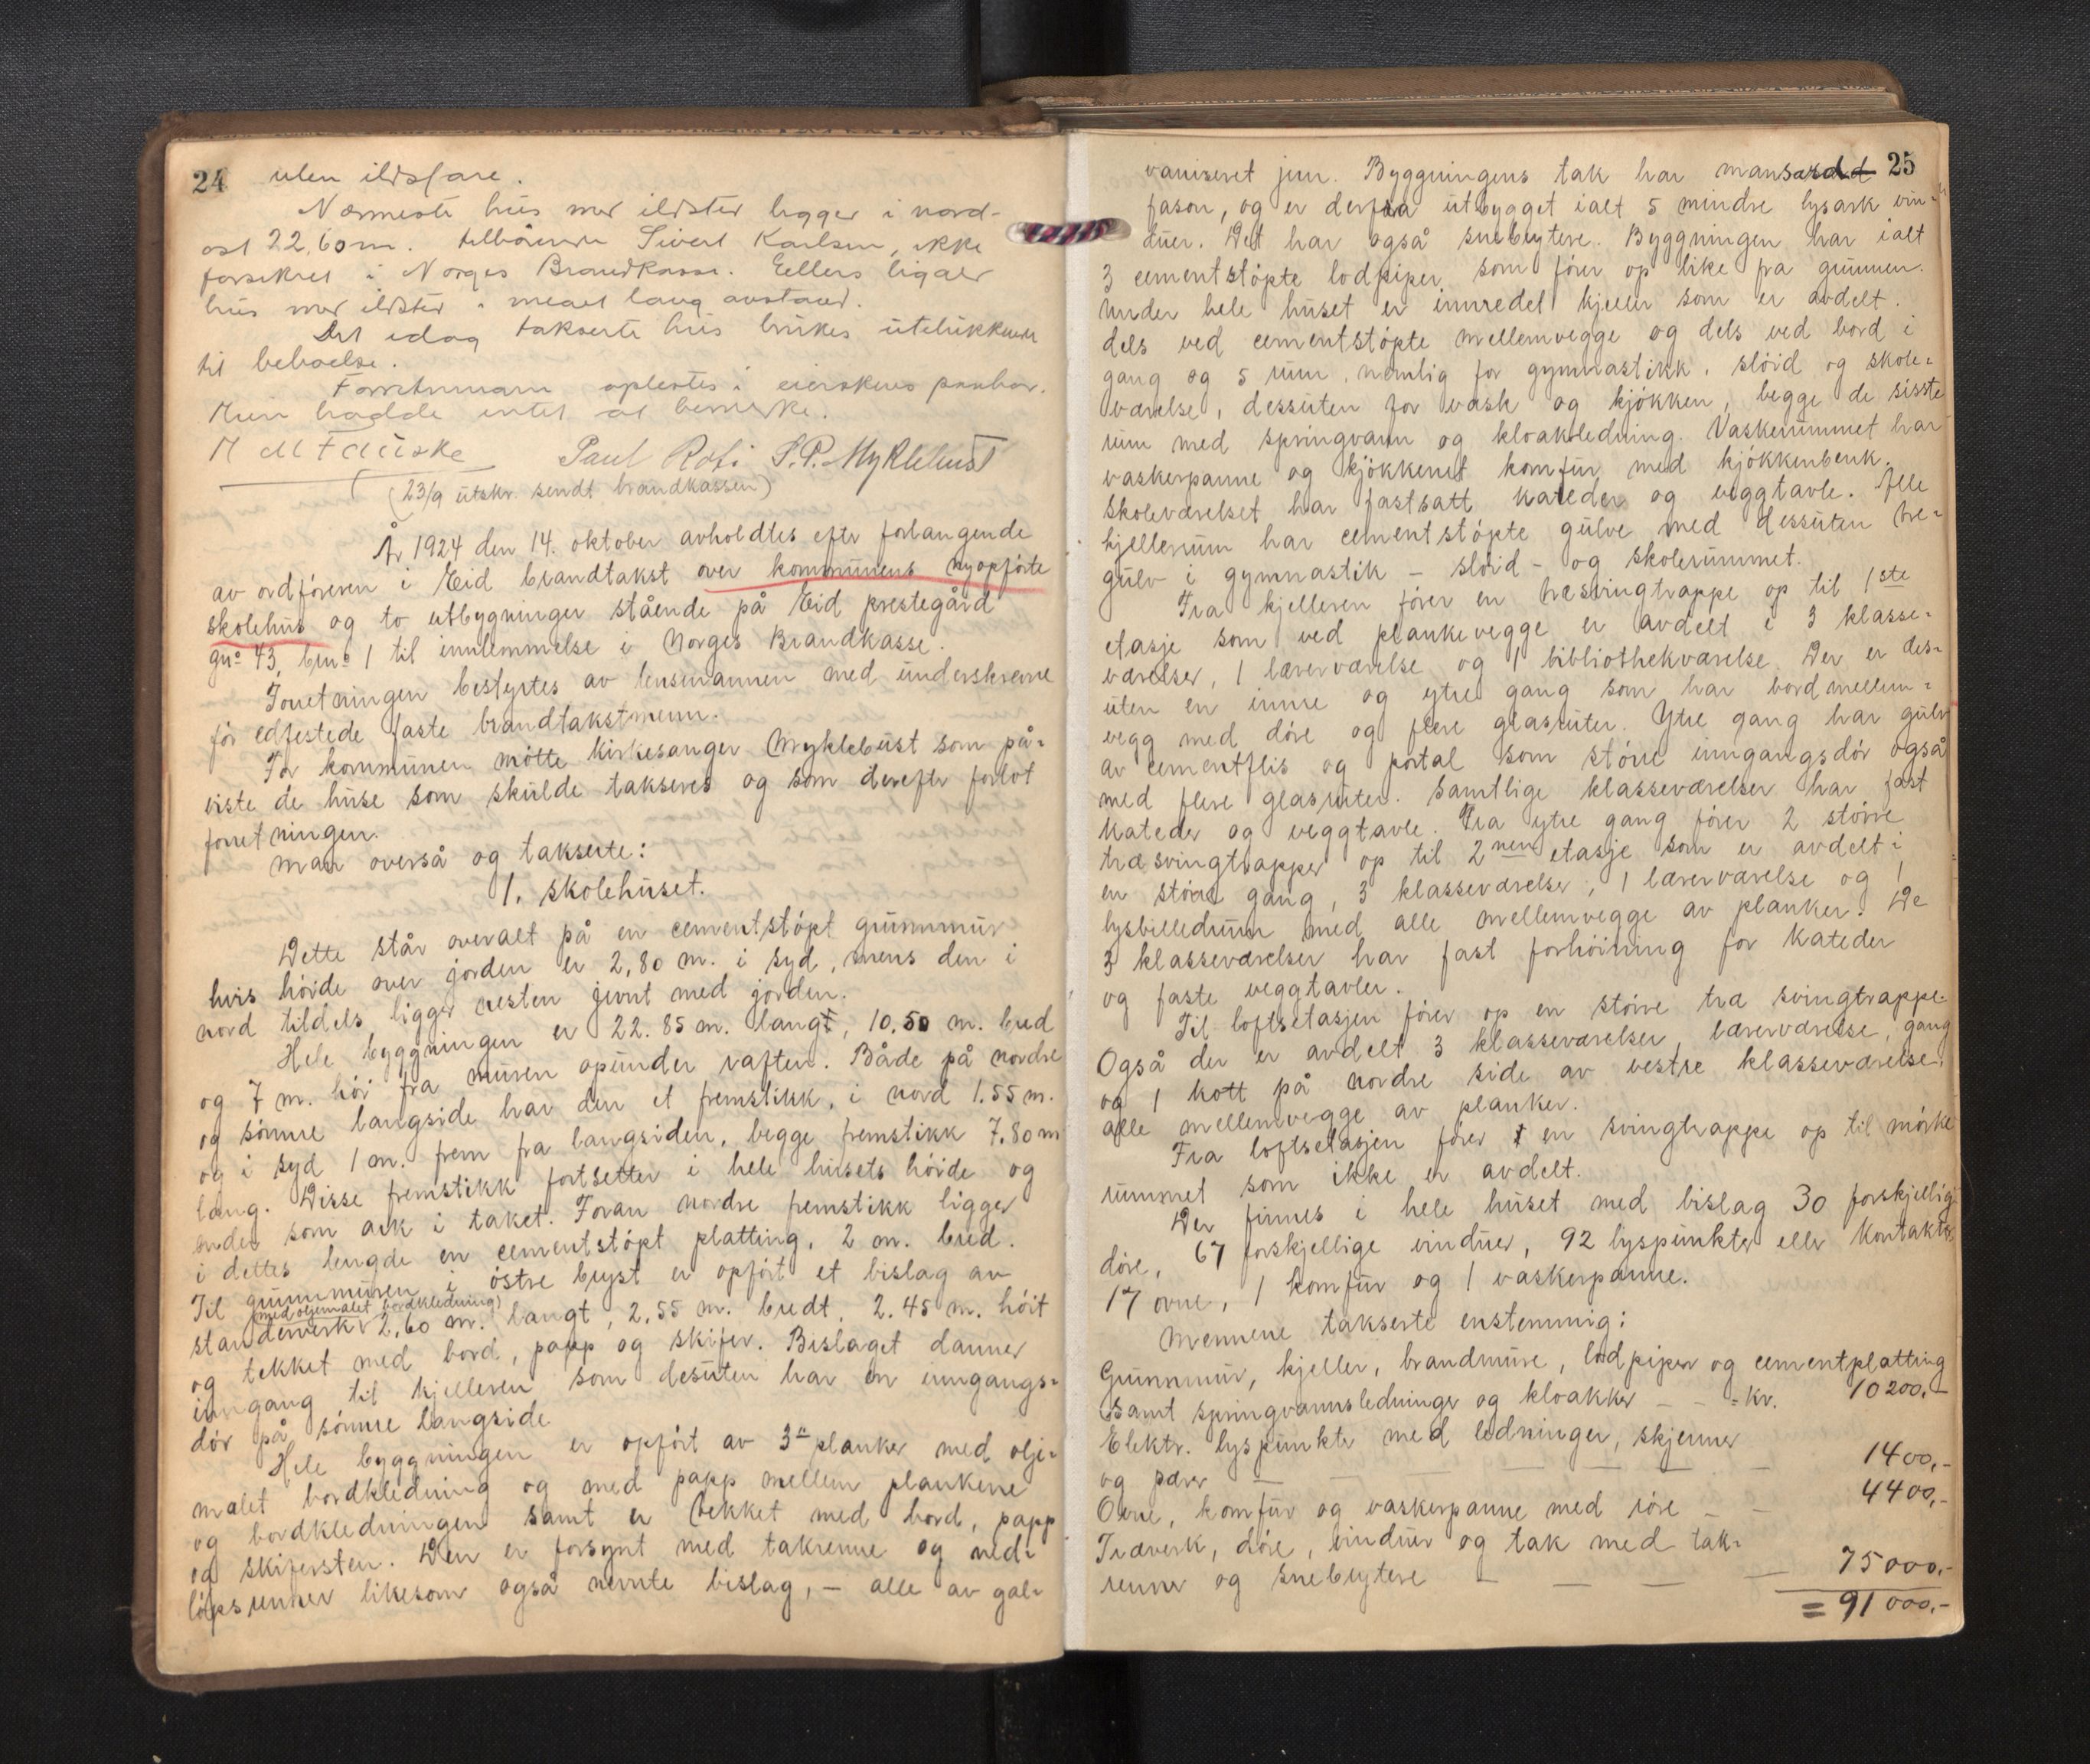 24 uten ildsfare.
Nærmeste hus med ildsted ligger i nord-
ost 22,60 m. tilhörende Sivert Karlsen, ikke
forsikret i Norges Brandkasse. Eellers ligger
hus med ildsted i meget lang avstand.
Det idag takserte hus brukes utelukkende
til beboelse.
Forretningen oplestes i eierskens paahør.
Hun hadde intet at bemerke.
M M Fauske Paul Roti S.P. Myklebust
(23/9 utskr. sendt brandkassen)
År 1924 den 14. oktober avholdtes efter forlangende
av ordföreren i Eid brandtakst over kommunens nyopførte
skolehus og to utbygninger stående på Eid prestegård
gno 43, bno 1 til innlemmelse i Norges Brandkasse.
Forretningen bestyrtes av lensmannen med underskrevne
før edfestede faste brandtakstmenn.
For kommunen møtte kirkesanger Myklebust som på-
viste de huse som skulde takseres og som derefter forlot
forretningen.
Man overså og takserte:
1. Skolehuset.
Dette står overalt på en cementstöpt grunnmur
hvis höide over jorden er 2,80 m. i syd, mens den i
nord tildels ligger nesten jevnt med jorden.
Hele byggningen er 22.85 m. langt, 10,50 m. bred
og 7 m. höi fra muren opunder raften. Både på nordre
og sönnre langside har den et fremstikk, i nord 1.55 m.
og i syd 1 m. frem fra langsiden, begge fremstikk 7.80 m
lang. Disse fremstikk fortsetter i hele husets höide og
ender som ark i taket. Foran nordre fremstikk ligger
i dettes lengde en cementstöpt platting, 2 m. bred.
Til grunnmuren i östre bryst er opfört et bislag av
(med oljemalet bordkledning)
standerverk 2,60 m. langt, 2,55 m. bredt, 2.45 m. höit
og tekket med bord, papp og skifer. Bislaget danner
inngang til kjelleren som desuten har en inngangs-
dör på sönnre langside
Hele byggningen er opfört av 3" planker med olje-
malet bordkledning og med papp mellem plankene
og bordkledningen samt er tekket med bord, papp
og skifersten. Den er forsynt med takrenne og ned-
löpsrenner likesom også nevnte bislag, – alle av gal-
25
vaniseret jern. Byggningens tak har mansard
fason, og er derfra utbygget ialt 5 mindre lysark vin-
duer. Det har også snebrytere. Byggningen har ialt
3 cementstöpte lodpiper som förer op like fra grunnen.
Under hele huset er innredet kjeller som er avdelt
dels ved cementstöpte mellemvegge og dels ved bord i
gang og 5 rum, nemlig for gymnastikk, slöid og skole-
værelse, dessuten for vask og kjökken, begge de sisste
rum med springvann og kloakledning. Vaskerummet har
vaskerpanne og kjökkenet komfur med kjökkenbenk.
Skoleværelset har fastsatt kateder og veggtavle. Alle
kjellerrum har cementstöpte gulve med dessuten tre-
gulv i gymnastik – slöid – og skolerummet.
Fra kjelleren förer en træsvingtrappe op til 1ste
etasje som ved plankevegge er avdelt i 3 klasse-
værelser, 1 lærerværelse og 1 bibliothekværelse. Der er des-
uten en innre og ytre gang som har bordmellem-
vegg med döre og flere glasruter. Ytre gang har gulv
av cementflis og portal som större inngangsdör også
med flere glasruter. Samtlige klasseværelser har fast
kateder og veggtavle. Fra ytre gang förer 2 större
træsvingtrapper op til 2nen etasje som er avdelt i
en större gang, 3 klasseværelser, 1 lærerværelse og 1
lysbilledrum med alle mellemvegge av planker. De
3 klasseværelser har fast forhöining for kateder
og faste veggtavler.
Til loftsetasjen förer op en större træ svingtrappe.
Også der er avdelt 3 klasseværelser, lærerværelse, gang
og 1 kott på nordre side av vestre klasseværelse.
Alle mellemvegge av planker.
Fra loftsetasjen förer en svingtrappe op til mörke
rummet som ikke er avdelt.
Der finnes i hele huset med bislag 30 forskjellige
döre, 67 forskjellige vinduer, 92 lyspunkter eller kontakter
17 ovne, 1 komfur og 1 vaskerpanne.
Mennene takserte enstemmig:
Grunnmur, kjeller, brandmure, lodpiper og cementplatting
samt springvannsledninger og kloakker – – = kr. 10200,–
Elektr. lyspunkter med ledninger, skjermer
og pærer – – – – – – 1400,–
Ovne, komfur og vaskerpanne med röre – – 4400,–
Træverk, döre, vinduer og tak med tak-
renner og snebrytere – – – – 75000,–
= 91000,–